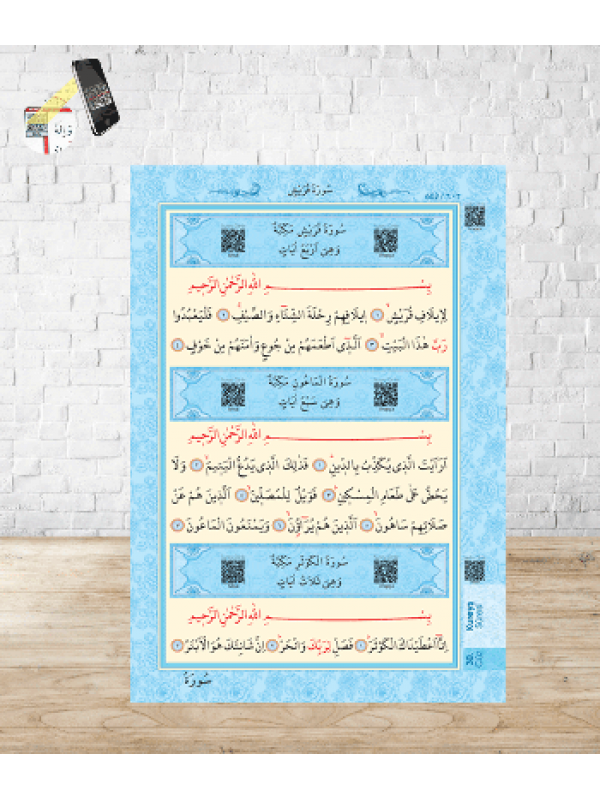 سُورَةُ قُرَيْشٍ
سُورَةُ قُرَيْشٍ مَكِّيَّةٌ
وَهِيَ اَرْبَعُ اٰيَاتٍ
بِسْمِ اللّٰهِ الرَّحْمٰنِ الرَّحِيمِ
لِاِيلَافِ قُرَيْشٍ ﴿١﴾ اِيلَافِهِمْ رِحْلَةَ الشِّتَٓاءِ وَالصَّيْفِ ﴿٢﴾ فَلْيَعْبُدُوا
رَبَّ هٰذَا الْبَيْتِ ﴿٣﴾ اَلَّذٖٓي اَطْعَمَهُمْ مِنْ جُوعٍ وَاٰمَنَهُمْ مِنْ خَوْفٍ ﴿٤﴾
سُورَةُ الْمَاعُونِ مَكِّيَّةٌ
وَهِيَ سَبْعُ اٰيَاتٍ
بِسْمِ اللّٰهِ الرَّحْمٰنِ الرَّحِيمِ
اَرَاَيْتَ الَّذٖي يُكَذِّبُ بِالدّٖينِ ﴿١﴾ فَذٰلِكَ الَّذٖي يَدُعُّ الْيَتٖيمَ ﴿٢﴾ وَلَا
يَحُضُّ عَلٰى طَعَامِ الْمِسْكٖينِ ﴿٣﴾ فَوَيْلٌ لِلْمُصَلّٖينَ ﴿٤﴾ اَلَّذٖينَ هُمْ عَنْ
صَلَاتِهِمْ سَاهُونَ ﴿٥﴾ اَلَّذٖينَ هُمْ يُرَٓاؤُ۫نَ ﴿٦﴾ وَيَمْنَعُونَ الْمَاعُونَ ﴿٧﴾
سُورَةُ الْكَوْثَرِ مَكِّيَّةٌ
وَهِيَ ثَلَاثُ اٰيَاتٍ
بِسْمِ اللّٰهِ الرَّحْمٰنِ الرَّحِيمِ
اِنَّٓا اَعْطَيْنَاكَ الْكَوْثَرَ ﴿١﴾ فَصَلِّ لِرَبِّكَ وَانْحَرْ ﴿٢﴾ اِنَّ شَانِئَكَ هُوَ الْاَبْتَرُ ﴿٣﴾
سُورَةُ
Kureyş
Sûresi
30.
Cüz